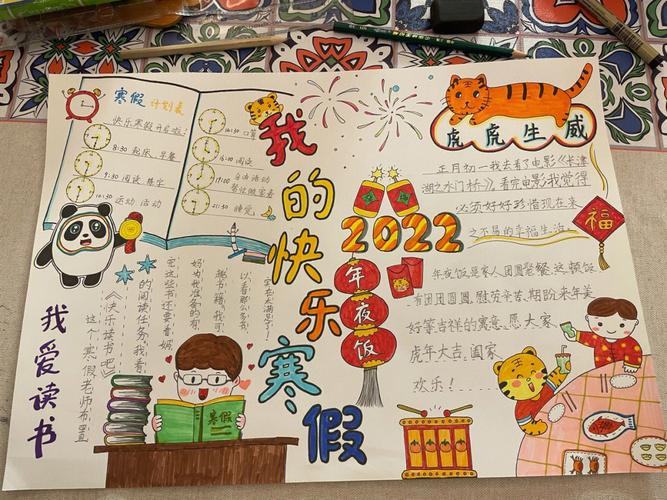 寒假计划表
快乐寒假开启啦!
8:30 起床、早餐
9:30 阅读、练字
10:30 运动、活动
14:30 口算
16:30 阅读
19:00 自由活动
帮忙做家务
21:30 睡觉
我的快乐寒假
虎虎生威
正月初一我去看了电影《长津
湖之水门桥》,看完电影我觉得
必须好好珍惜现在来
之不易的幸福生活。
福
2022
年夜饭
年夜饭是家人团圆聚餐,这顿饭
有团团圆圆,慰劳辛苦,期盼来年美
好等吉祥的寓意,愿大家
虎年大吉,阖家
欢乐!
我爱读书
这个寒假老师布置
《快乐读书吧》
的阅读任务,我看
完这些书还要看妈
妈为我准备的有
趣书籍,我可
以看那么多书,
实在太满足了!
寒假